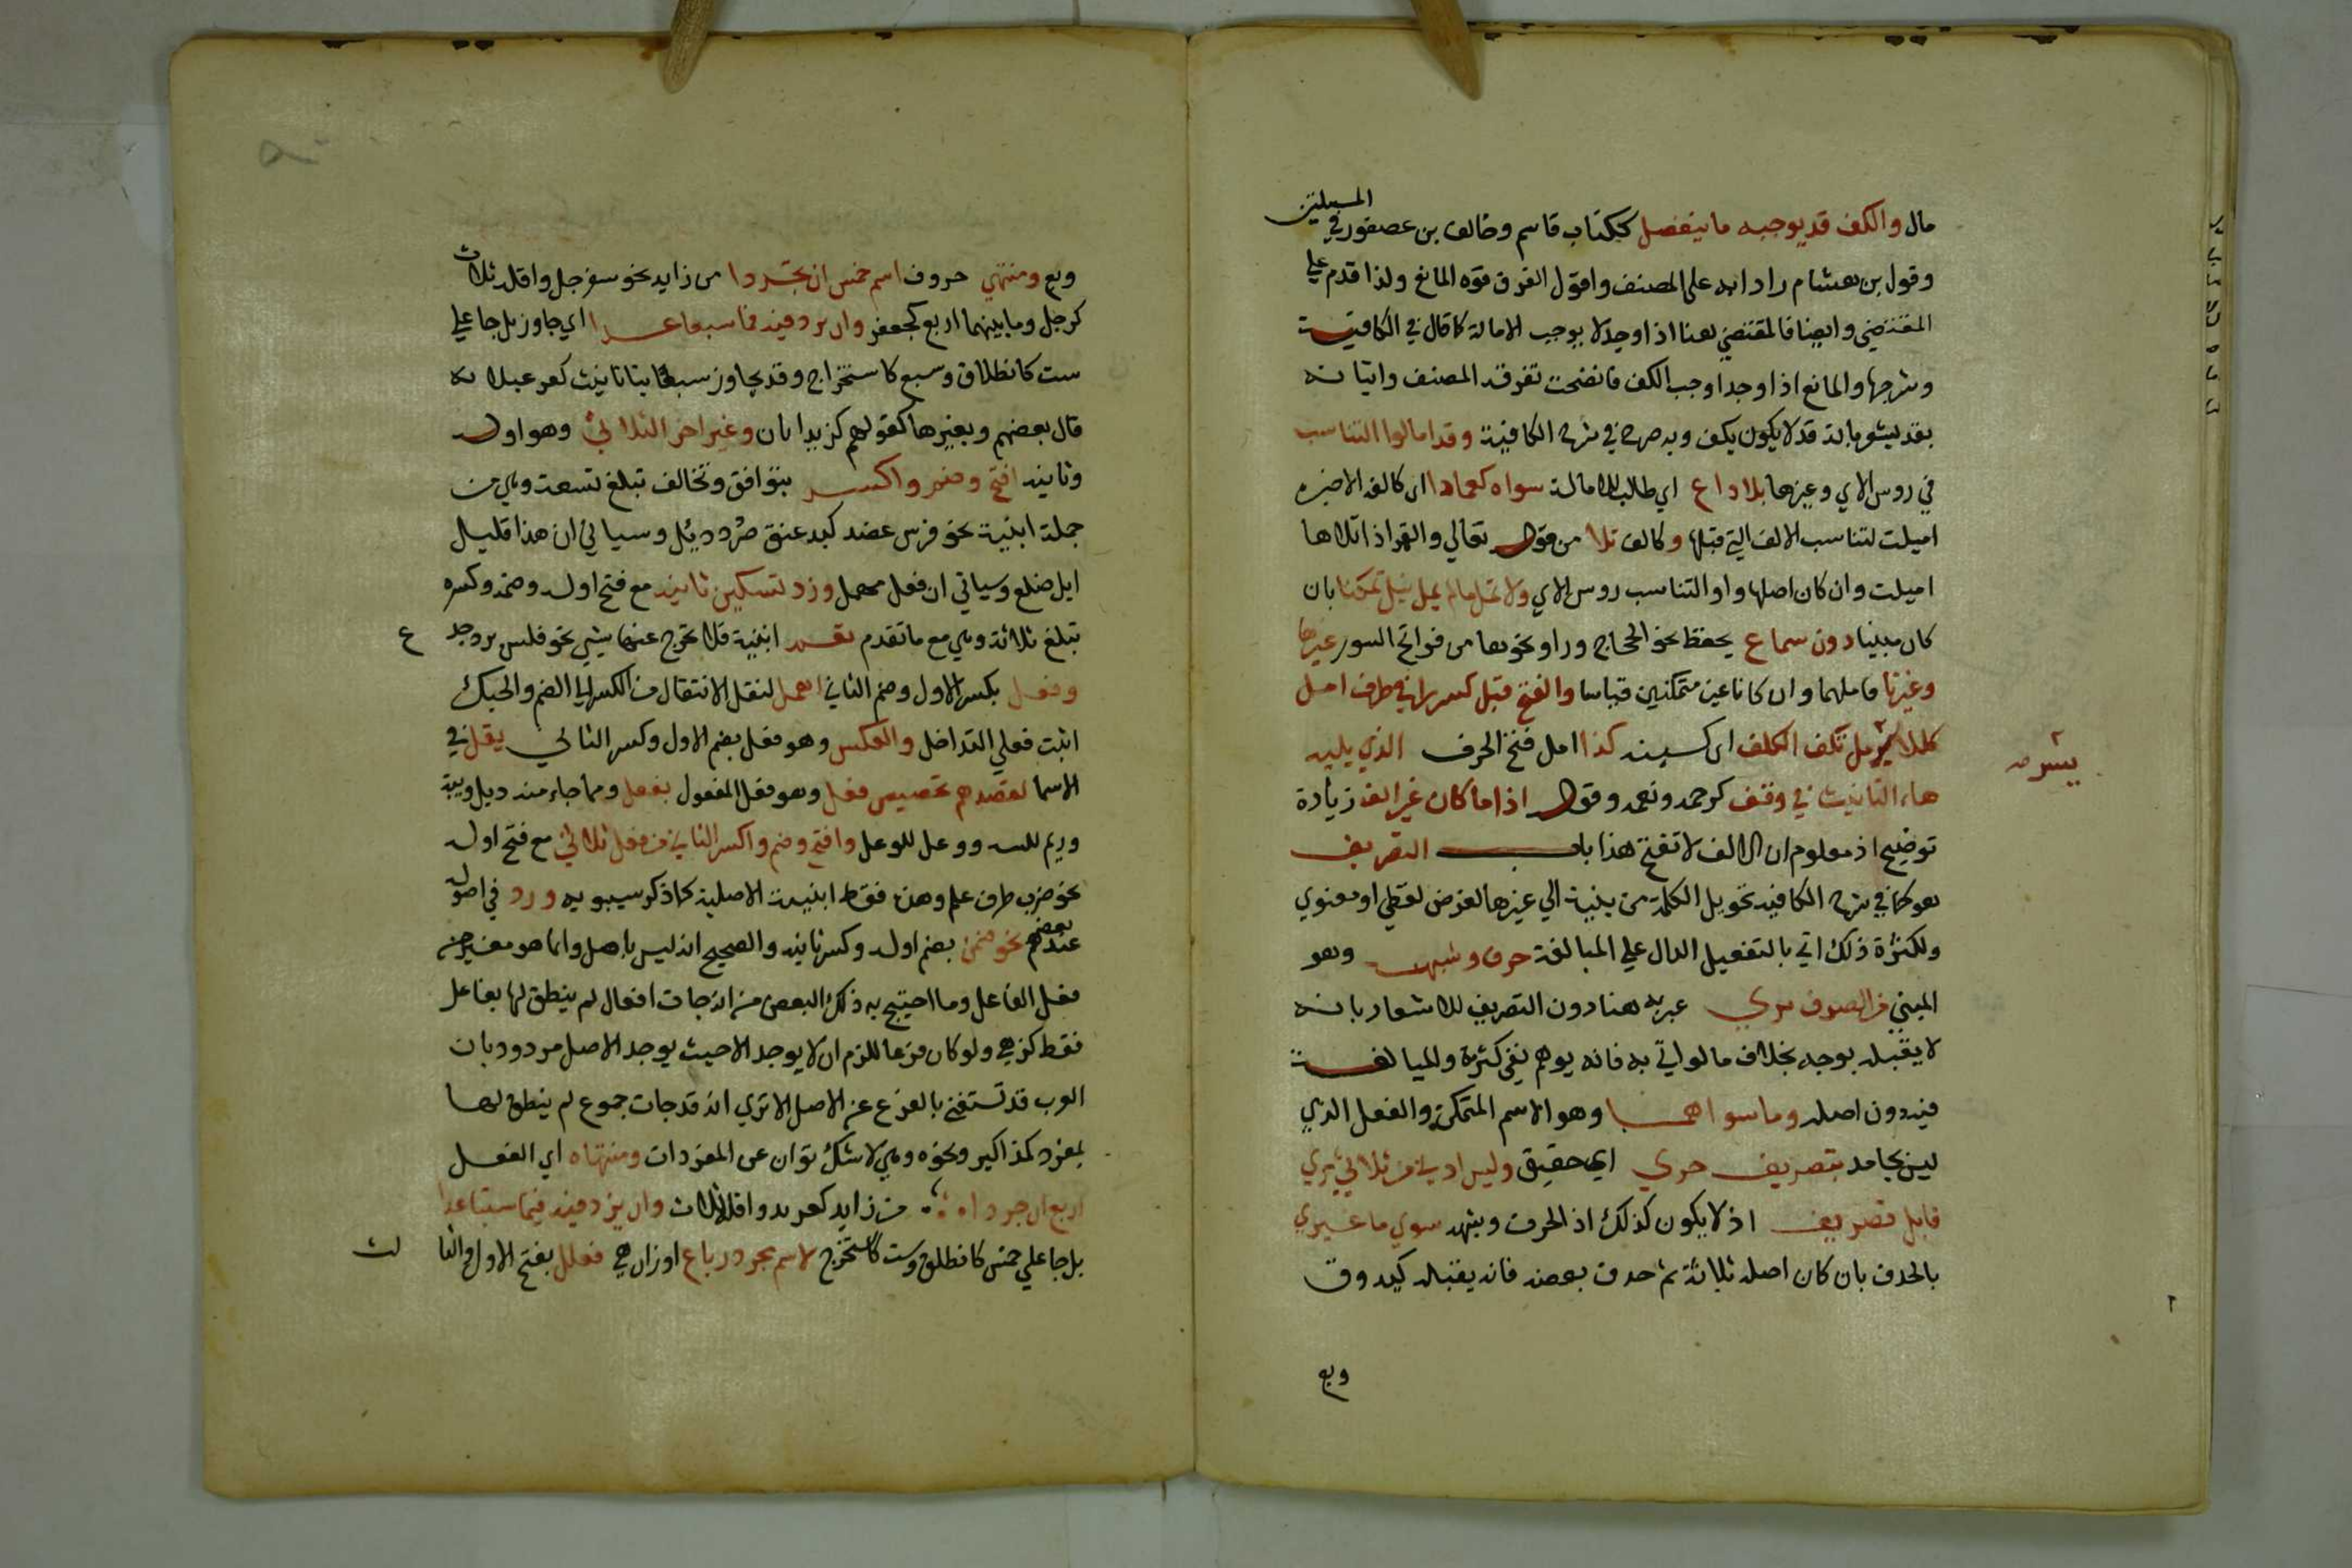 المسيلتين
مال والكف قد يوجبه ما ينفصل ككتاب قاسم وخالف بن عصفور في
وقول بن هشام راد ابه على المصنف واقول الفرق قوه المانع ولذا قدم علي
المقتضي وايضا فالمقتضي هنا اذا وجد لا يوجب الامالة كما قال في الكافية
وشرحها والمانع اذا وجد اوجب الكف فاتضحت تفرقة المصنف واتيانه
بقد يشعر بانه قد لا يكون يكف وبه صرح في شرح الكافية وقد امالوا التناسب
في روس الاي وغيرها بلا داع اي طالب للامالة سواه كعمادا اي كالفه الاخيره
اميلت لتناسب الالف التي قبلها وكالف تلا من قوله تعالي والقمر اذا تلاها
اميلت وان كان اصلها واوا لتناسب روس الاي ولا تمل ما لم ينل تمكنا بان
كان مبنيا دون سماع يحفظ نحو الحجاج ورا ونحوها من فواتح السور غيرها
وغيرنا فاملهما وان كانا غير متمكنين قياسا والفتح قبل كسر راء في طرف امل
كللايسر مل تكف الكلف اي كسينه كذا امل فتح الحرف الذي يليه
هاء التانيث في وقف كرحمه ونعمه وقوله اذا ما كان غير الف زيادة
توضيح اذ معلوم ان الالف لا تفتح هذا باب التصريف
هو كما في شرح الكافيه تحويل الكلمة من بنية الي غيرها لغرض لفظي او معنوي
ولكثرة ذلك اتي بالتفعيل الدال علي المبالغة حرف وشبهه وهو
المبني من الصرف بري عبر به هنا دون التصريف للاشعار بانه
لا يقبله بوجه بخلاف ما لو اتي به فانه يوهم نفي كثرته والمبالغة
فيه دون اصله وما سواهما وهو الاسم المتمكن والفعل الذي
ليس بجامد بتصريف حري اي حقيق وليس ادني من ثلاثي يري
قابل تصريف اذ لا يكون كذلك اذ الحرف وشبهه سوي ما غيري
بالحذف بان كان اصله ثلاثة ثم حذف بعضه فانه يقبله كيد وق
وبع
يسر صه
وبع ومنتهي حروف اسم خمس ان تجردا من زايد نحو سفرجل واقله ثلاث
كرجل وما بينهما اربع كجعفر وان يزد فيه فما سبعا عدا اي جاوز بل جا علي
ست كانطلاق وسبع كاستخراج وقد يجاوز سبعا بتا تانيث كقرعبلانه
قال بعضهم وبغيرها كقولهم كزبدابان وغير اخر الثلاثي وهو اوله
وثانيه افتح وضم واكسر بتوافق وتخالف تبلغ تسعة وهي من
جملة ابنية نحو فرس عضد كبد عنق صرد دئل وسياتي ان هذا قليل
ابل ضلع وسياتي ان فعل مهمل وزد تسكين ثانيه مع فتح اوله وضمه وكسره
تبلغ ثلاثة وهي مع ما تقدم تعم ابنية فلا تخرج عنها شي نحو فلس برد وجد
ع
وفعل بكسر الاول وضم الثاني اهمل لنقل الانتقال من الكسر الي الضم والحبك
اثبت فعلي التداخل والعكس وهو فعل بضم الاول وكسر الثاني يقل في
الاسما لقصدهم تخصيص فعل وهو فعل المفعول بفعل ومما جاء منه دئل
وريم للسه ووعل للوعل وافتح وضم واكسر الثاني من فعل ثلاثي مع فتح اوله
نحو ضرب ظرف علم وهذه فقط ابنيته الاصلية كما ذكر سيبويه وزد في اصوله
عند بعضهم نحو ضمن بضم اوله وكسر ثانيه والصحيح انه ليس باصل وانما هو مغير من
فعل الفاعل وما احتج به ذلك البعض من انه جات افعال لم ينطق لها بفاعل
فقط كزهي ولو كان فرعا للزم ان لا يوجد الا حيث يوجد الاصل مردود بان
العرب قد تستغني بالفرع عن الاصل الا تري انه قد جات جموع لم ينطق لها
بمفرد كمذاكير ونحوه وهي لا شك ثوان عن المفردات ومنتهاه اي الفعل
اربع ان جردا من زايد كعربد واقله ثلاث وان يزد فيه فما ستا عدا
بل جا علي خمس كانطلق وست كاستخرج لاسم مجرد رباع اوزان هي فعلل بفتح الاول والثا
لث